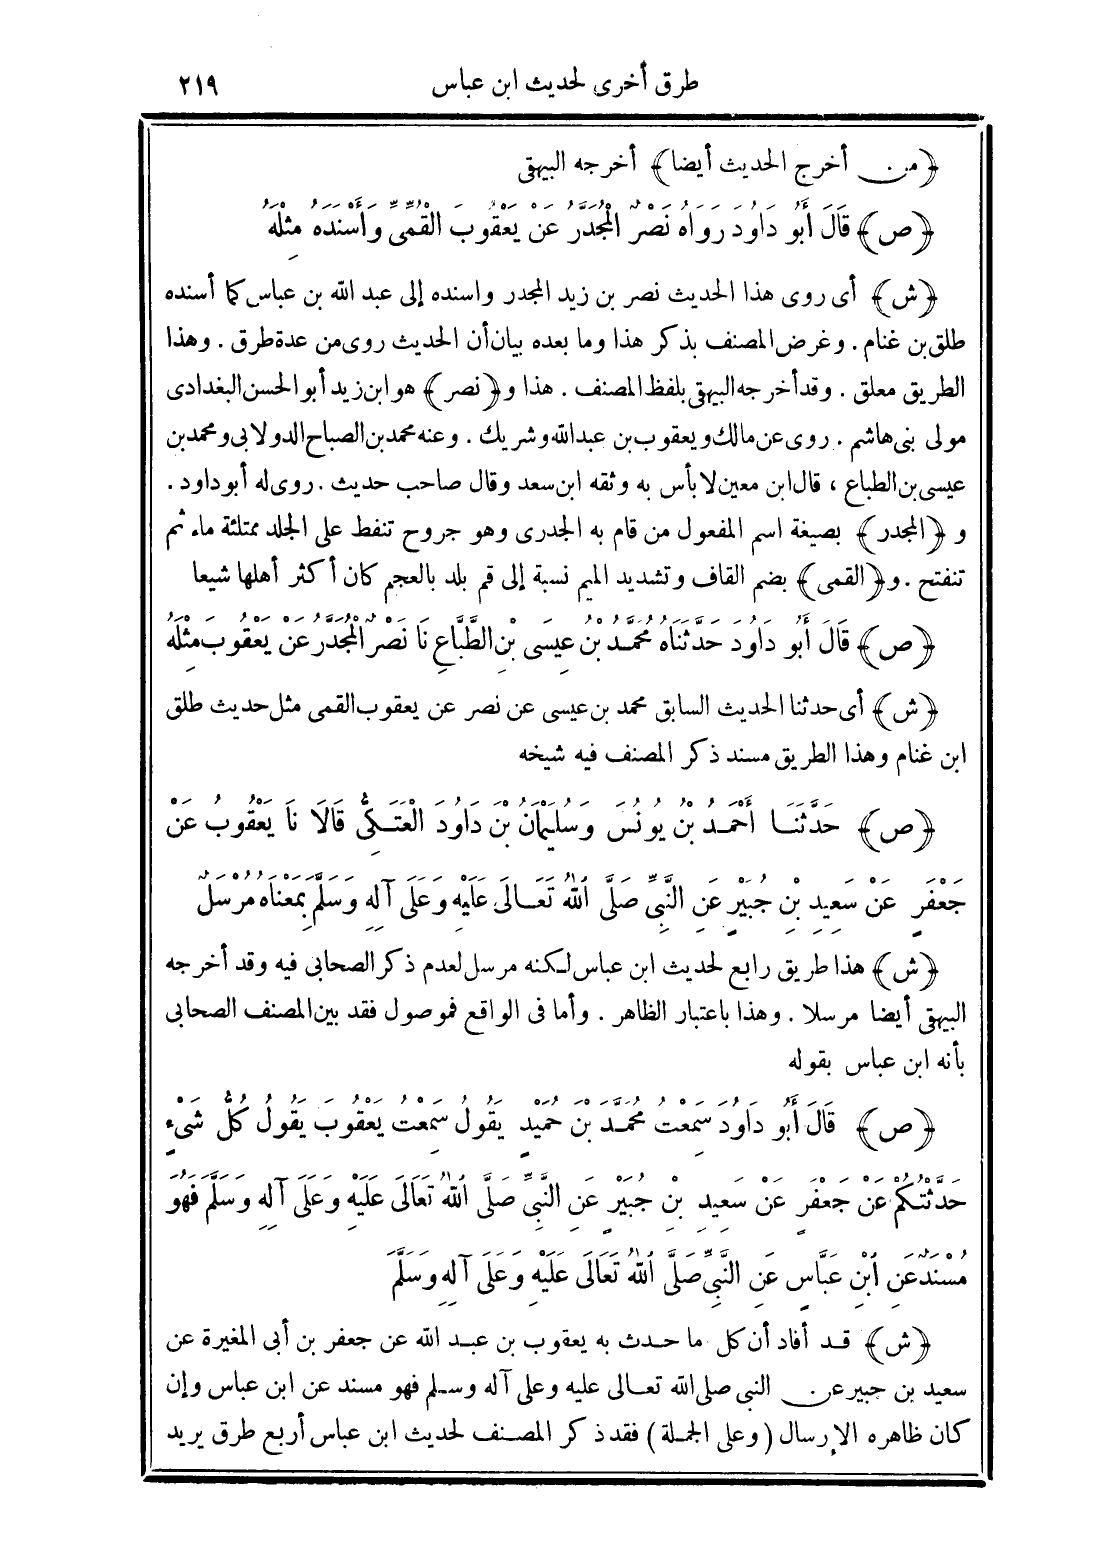 طرق أخرى لحديث ابن عباس ٢١٩
﴿من أخرج الحديث أيضا﴾ أخرجه البيهقى
﴿ص﴾ قَالَ أَبُو دَاوُدَ رَوَاهُ نَصْرٌ الْمُجَدَّرُ عَنْ يَعْقُوبَ الْقُمِّىِّ وَأَسْنَدَهُ مِثْلَهُ
﴿ش﴾ أى روى هذا الحديث نصر بن زيد المجدر واسنده إلى عبد الله بن عباس كما أسنده
طلق بن غنام . وغرض المصنف بذكر هذا وما بعده بيان أن الحديث روى من عدة طرق . وهذا
الطريق معلق . وقد أخرجه البيهقى بلفظ المصنف . هذا و﴿نصر﴾ هو ابن زيد أبو الحسن البغدادى
مولى بنى هاشم . روى عن مالك ويعقوب بن عبد الله وشريك . وعنه محمد بن الصباح الدولابى ومحمد بن
عيسى بن الطباع ، قال ابن معين لا بأس به وثقه ابن سعد وقال صاحب حديث . روى له أبو داود .
و﴿المجدر﴾ بصيغة اسم المفعول من قام به الجدرى وهو جروح تنفط على الجلد ممتلئة ماء ثم
تنفتح . و﴿القمى﴾ بضم القاف وتشديد الميم نسبة إلى قم بلد بالعجم كان أكثر أهلها شيعا
﴿ص﴾ قَالَ أَبُو دَاوُدَ حَدَّثَنَاهُ مُحَمَّدُ بْنُ عِيسَى بْنِ الطَّبَّاعِ نَا نَصْرٌ الْمُجَدَّرُ عَنْ يَعْقُوبَ مِثْلَهُ
﴿ش﴾ أى حدثنا الحديث السابق محمد بن عيسى عن نصر عن يعقوب القمى مثل حديث طلق
ابن غنام وهذا الطريق مسند ذكر المصنف فيه شيخه
﴿ص﴾ حَدَّثَنَا أَحْمَدُ بْنُ يُونُسَ وَسُلَيْمَانُ بْنُ دَاوُدَ الْعَتَكِىُّ قَالَا نَا يَعْقُوبُ عَنْ
جَعْفَرٍ عَنْ سَعِيدِ بْنِ جُبَيْرٍ عَنِ النَّبِىِّ صَلَّى اللهُ تَعَالَى عَلَيْهِ وَعَلَى آلِهِ وَسَلَّمَ بِمَعْنَاهُ مُرْسَلٌ
﴿ش﴾ هذا طريق رابع لحديث ابن عباس لكنه مرسل لعدم ذكر الصحابى فيه وقد أخرجه
البيهقى أيضا مرسلا . وهذا باعتبار الظاهر . وأما فى الواقع فموصول فقد بين المصنف الصحابى
بأنه ابن عباس بقوله
﴿ص﴾ قَالَ أَبُو دَاوُدَ سَمِعْتُ مُحَمَّدَ بْنَ حُمَيْدٍ يَقُولُ سَمِعْتُ يَعْقُوبَ يَقُولُ كُلُّ شَىْءٍ
حَدَّثْتُكُمْ عَنْ جَعْفَرٍ عَنْ سَعِيدِ بْنِ جُبَيْرٍ عَنِ النَّبِىِّ صَلَّى اللهُ تَعَالَى عَلَيْهِ وَعَلَى آلِهِ وَسَلَّمَ فَهُوَ
مُسْنَدٌ عَنِ ابْنِ عَبَّاسٍ عَنِ النَّبِىِّ صَلَّى اللهُ تَعَالَى عَلَيْهِ وَعَلَى آلِهِ وَسَلَّمَ
﴿ش﴾ قد أفاد أن كل ما حدث به يعقوب بن عبد الله عن جعفر بن أبى المغيرة عن
سعيد بن جبير عن النبى صلى الله تعالى عليه وعلى آله وسلم فهو مسند عن ابن عباس وإن
كان ظاهره الإرسال (وعلى الجملة) فقد ذكر المصنف لحديث ابن عباس أربع طرق يريد